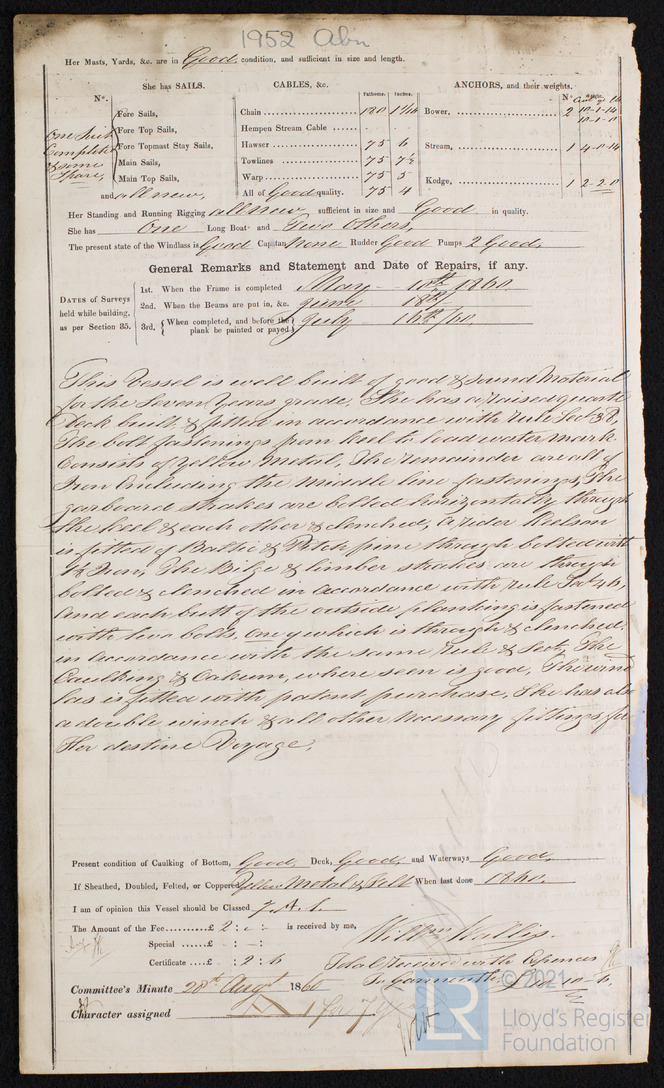 1952 Abn
Her Masts, Yards, &c. are in Good condition, and sufficient in size and length.
She has SAILS. CABLES, &c. ANCHORS, and their weights.
N°. Fathoms. Inches. N°
One Suit Complete & some Spare,
Fore Sails,
Fore Top Sails,
Fore Topmast Stay Sails,
Main Sails,
Main Top Sails,
and all new,
Chain 180
Hempen Stream Cable
Hawser 75 6
Towlines 75 7½
Warp 75 5
All of Good quality. 75 4
Bower, 2 10-1-14
10-1-0
Stream, 1 4-0-14
Kedge, 1 2-2-0
Her Standing and Running Rigging all new sufficient in size and Good in quality.
She has One Long Boat and Two Others,
The present state of the Windlass is Good Capstan None Rudder Good Pumps 2 Good,
General Remarks and Statement and Date of Repairs, if any.
DATES of Surveys held while building, as per Section 35.
1st. When the Frame is completed May 10th 1860.
2nd. When the Beams are put in, &c. June 18th/
3rd. When completed, and before the plank be painted or payed July 16th/60.
This Vessel is well built of good & sound Material
for the Seven Years grade, She has a raised quarter
deck built & fitted in accordance with rule Sect 38,
The bolt fastenings from keel to load water mark
Consists of Yellow Metal, The remainder are all of
Iron Including the Middle line fastenings, The
garboard strakes are bolted horizontally through
the keel & each other & clenched, a rider Keelson
is fitted of Baltic & Pitch pine through bolted with
Iron, The Bilge & limber strakes are through
bolted & clenched in accordance with rule Sect 46,
and each butt of the outside planking is fastened
with two bolts, one of which is through & clenched,
in accordance with the same rule & Sect, The
Caulking & Oakum, where seen is good, The wind
las is fitted with patent purchase, She has also
a double winch & all other Necessary fittings for
Her destine Voyage,
Present condition of Caulking of Bottom, Good, Deck, Good, and Waterways Good,
If Sheathed, Doubled, Felted, or Coppered Yellow Metal & Felt When last done 1860.
I am of opinion this Vessel should be Classed 7. A. 1.
The Amount of the Fee £ 2 : - : - is received by me,
Special £ - : - :
Certificate £ : 2 : 6
Willm Wallis
Total received with Expences
To Yarmouth
Committee's Minute 28th Augt 1860
Character assigned A 1 for 7 Y
© 2021
LR Lloyd's Register
Foundation